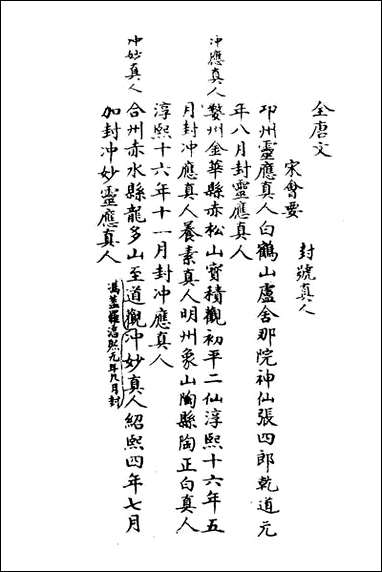 全唐文
宋會要
封號真人
邛州靈應真人白鶴山盧舍那院神仙張四郎乾道元
年八月封靈應真人
冲應真人
婺州金華縣赤松山寶積觀初平二仙淳熙十六年五
月封冲應真人養素真人明州象山陶縣陶正白真人
淳熙十六年十一月封冲應真人
冲妙真人
合州赤水縣龍多山至道觀冲妙真人紹熙四年七月
馮蓋羅淳熙元年八月封
加封冲妙靈應真人